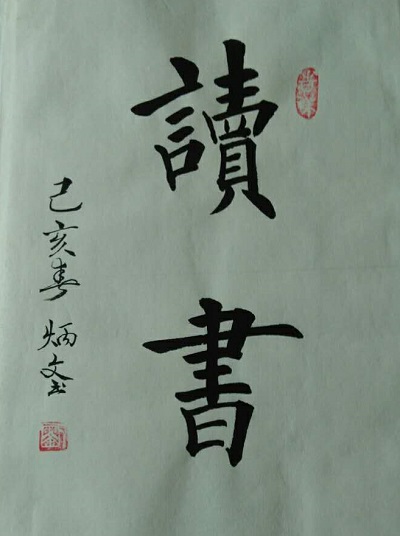 讀書
己亥春 炳文书